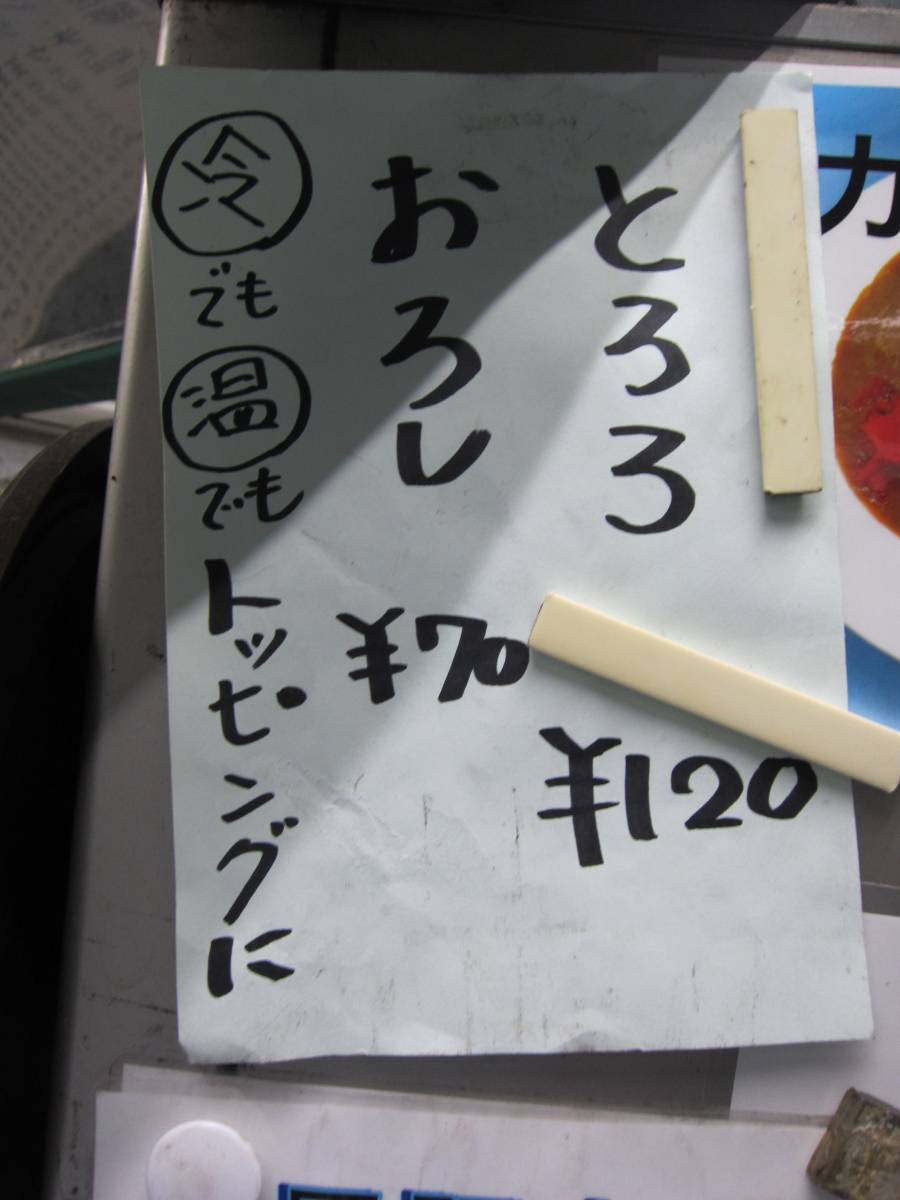 とろろ ¥120
おろし ¥70
冷でも温でもトッピングに
カ